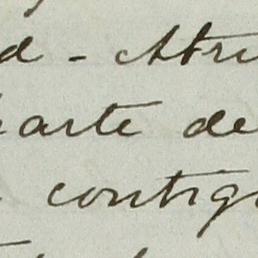 d - Abri
parte de
contig